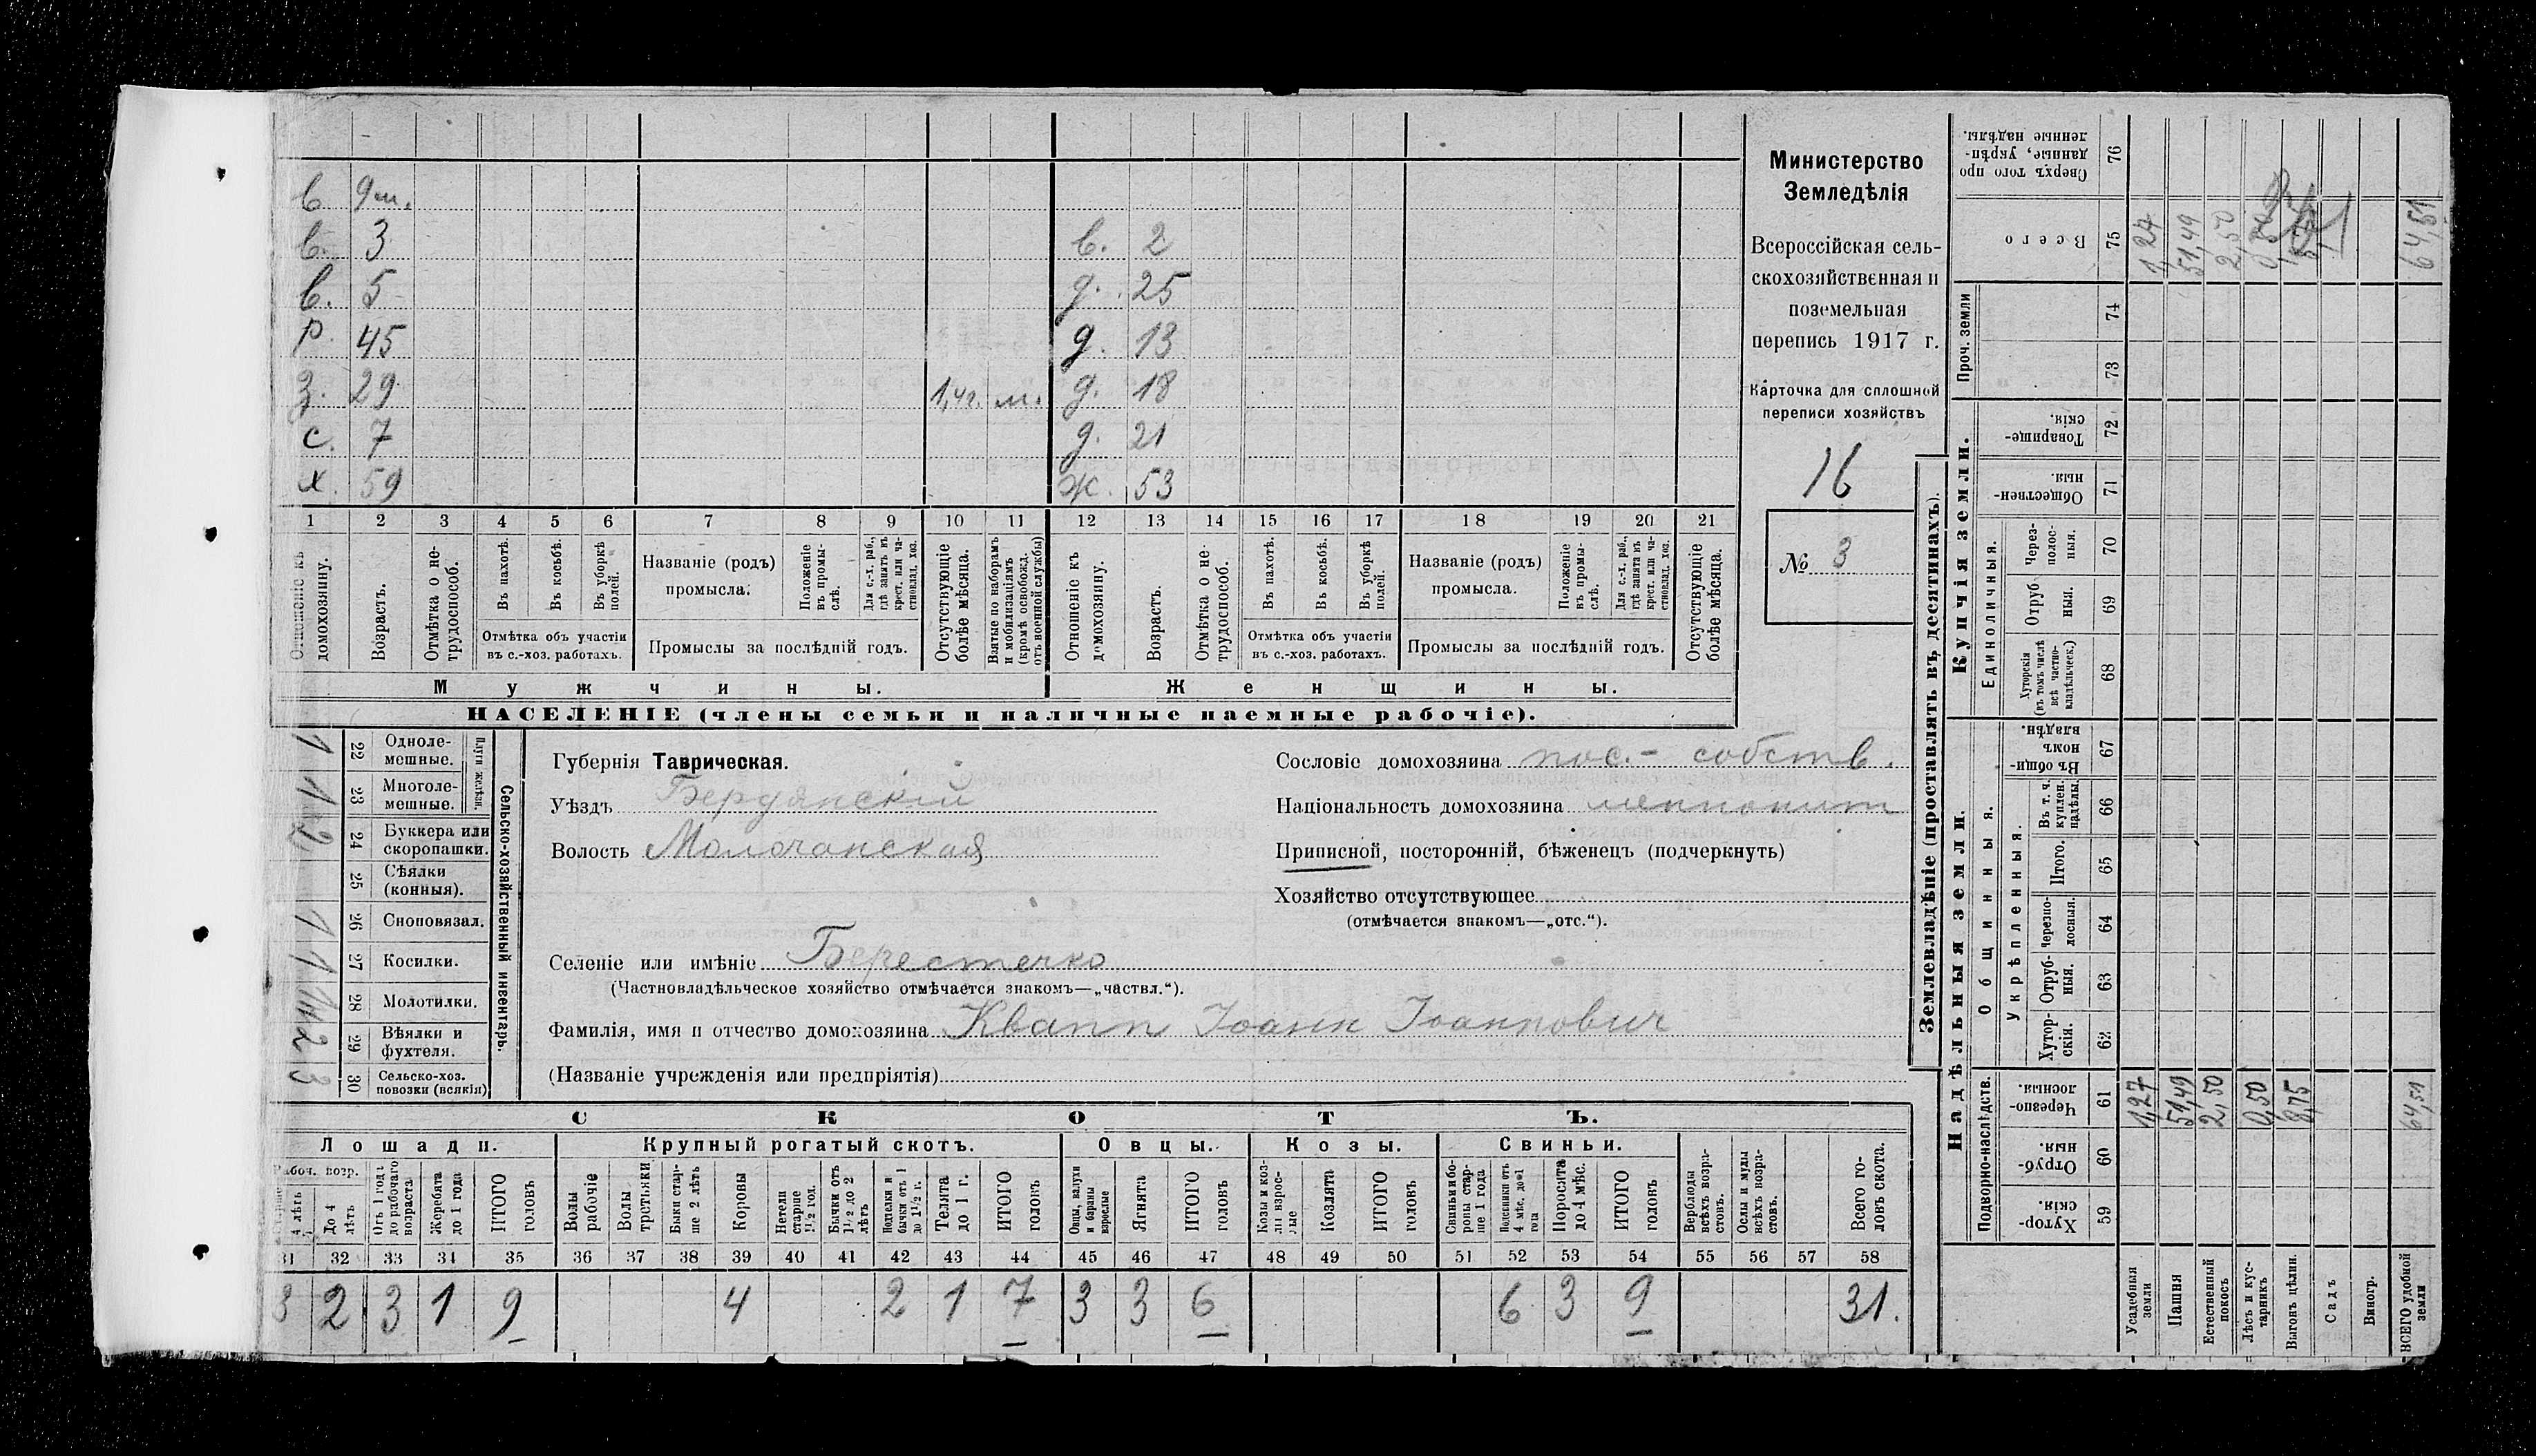 в. 9 м.
в. 3 в. 2
в. 5 д. 25
р. 45 д. 13
з. 29 1,4 г. м. д. 18
с. 7 д. 21
х. 59 ж. 53
1 2 3 4 5 6 7 8 9 10 11 12 13 14 15 16 17 18 19 20 21
Отношеніе къ домохозяину.
Возрастъ.
Отмѣтка о нетрудоспособ.
Въ пахотѣ.
Въ косьбѣ.
Въ уборкѣ полей.
Отмѣтка объ участіи
въ с.-хоз. работахъ.
Названіе (родъ)
промысла.
Положеніе въ промыслѣ.
Для с.-х. раб., гдѣ занятъ въ крест. или частновлад. хоз.
Промыслы за послѣдній годъ.
Отсутствующіе болѣе мѣсяца.
Взятые по наборамъ и мобилизаціямъ (кромѣ освобожд. отъ военной службы)
Отношеніе къ домохозяину.
Возрастъ.
Отмѣтка о нетрудоспособ.
Въ пахотѣ.
Въ косьбѣ.
Въ уборкѣ полей.
Отмѣтка объ участіи
въ с.-хоз. работахъ.
Названіе (родъ)
промысла.
Положеніе въ промыслѣ.
Для с.-х. раб., гдѣ занята въ крест. или частновлад. хоз.
Промыслы за послѣдній годъ.
Отсутствующіе болѣе мѣсяца.
Мужчины. Женщины.
НАСЕЛЕНІЕ (члены семьи и наличные наемные рабочіе).
Министерство
Земледѣлія
Всероссійская сель-
скохозяйственная и
поземельная
перепись 1917 г.
Карточка для сплошной
переписи хозяйствъ
16
№ 3
Сельско-хозяйственный инвентарь.
Плуги желѣзн.
1 22 Одноле-
мешные.
1 23 Многоле-
мешные.
2 24 Буккера или
скоропашки.
25 Сѣялки
(конныя).
1 26 Сноповязал.
1 27 Косилки.
28 Молотилки.
2 29 Вѣялки и
фухтеля.
3 30 Сельско-хоз.
повозки (всякія)
Губернія Таврическая.
Уѣздъ Бердянскій
Волость Молочанская
Сословіе домохозяина пос.- собств.
Національность домохозяина меннонит
Приписной, посторонній, бѣженецъ (подчеркнуть)
Хозяйство отсутствующее
(отмѣчается знакомъ—„отс.“).
Селеніе или имѣніе Берестечко
(Частновладѣльческое хозяйство отмѣчается знакомъ—„частвл.“).
Фамилія, имя и отчество домохозяина Квапп Іоанн Іоаннович
(Названіе учрежденія или предпріятія)
СКОТЪ.
Лошади. Крупный рогатый скотъ. Овцы. Козы. Свиньи.
Рабоч. возр.
4 лѣтъ
До 4 лѣтъ
Отъ 1 года до рабочаго возраста
Жеребята до 1 года
ИТОГО головъ
Волы рабочіе
Волы третьяки
Быки старше 2 лѣтъ
Коровы
Нетели старше 1½ год.
Бычки отъ 1½ до 2 лѣтъ
Нетели и бычки отъ 1 до 1½ г.
Телята до 1 г.
ИТОГО головъ
Овцы, валухи и бараны взрослые
Ягнята
ИТОГО головъ
Козы и козлы взрослые
Козлята
ИТОГО головъ
Свиньи и боровы старше 1 года
Подсвинки отъ 4 мѣс. до 1 года
Поросята до 4 мѣс.
ИТОГО головъ
Верблюды всѣхъ возрастовъ.
Ослы и мулы всѣхъ возрастовъ.
Всего головъ скота.
31 32 33 34 35 36 37 38 39 40 41 42 43 44 45 46 47 48 49 50 51 52 53 54 55 56 57 58
3 2 3 1 9 4 2 1 7 3 3 6 6 3 9 31.
Землевладѣніе (проставлять въ десятинахъ).
Надѣльныя земли. Купчія земли. Проч. земли
Подворно-наслѣдств.
Общинныя.
Укрѣпленныя.
Единоличныя.
Хуторскія. 59
Отрубныя. 60
Черезполосныя. 61
Хуторскія. 62
Отрубныя. 63
Черезполосныя. 64
Итого. 65
Въ т. ч. куплен. надѣлы. 66
Въ общинномъ владѣн. 67
Хуторскія (въ томъ числѣ всѣ частновладѣльческ.) 68
Отрубныя. 69
Черезполосныя. 70
Общественныя. 71
Товарищескія. 72
73
74
Всего 75
Сверхъ того проданные, укрѣпленные надѣлы. 76
Усадебныя земли 1,27
Пашня 51,49 51,49
Естественный покосъ 2,50 2,50
Лѣсъ и кустарникъ 0,50
Выгонъ цѣлин. 8,75
Садъ
Виногр.
ВСЕГО удобной земли 64,51 64,51